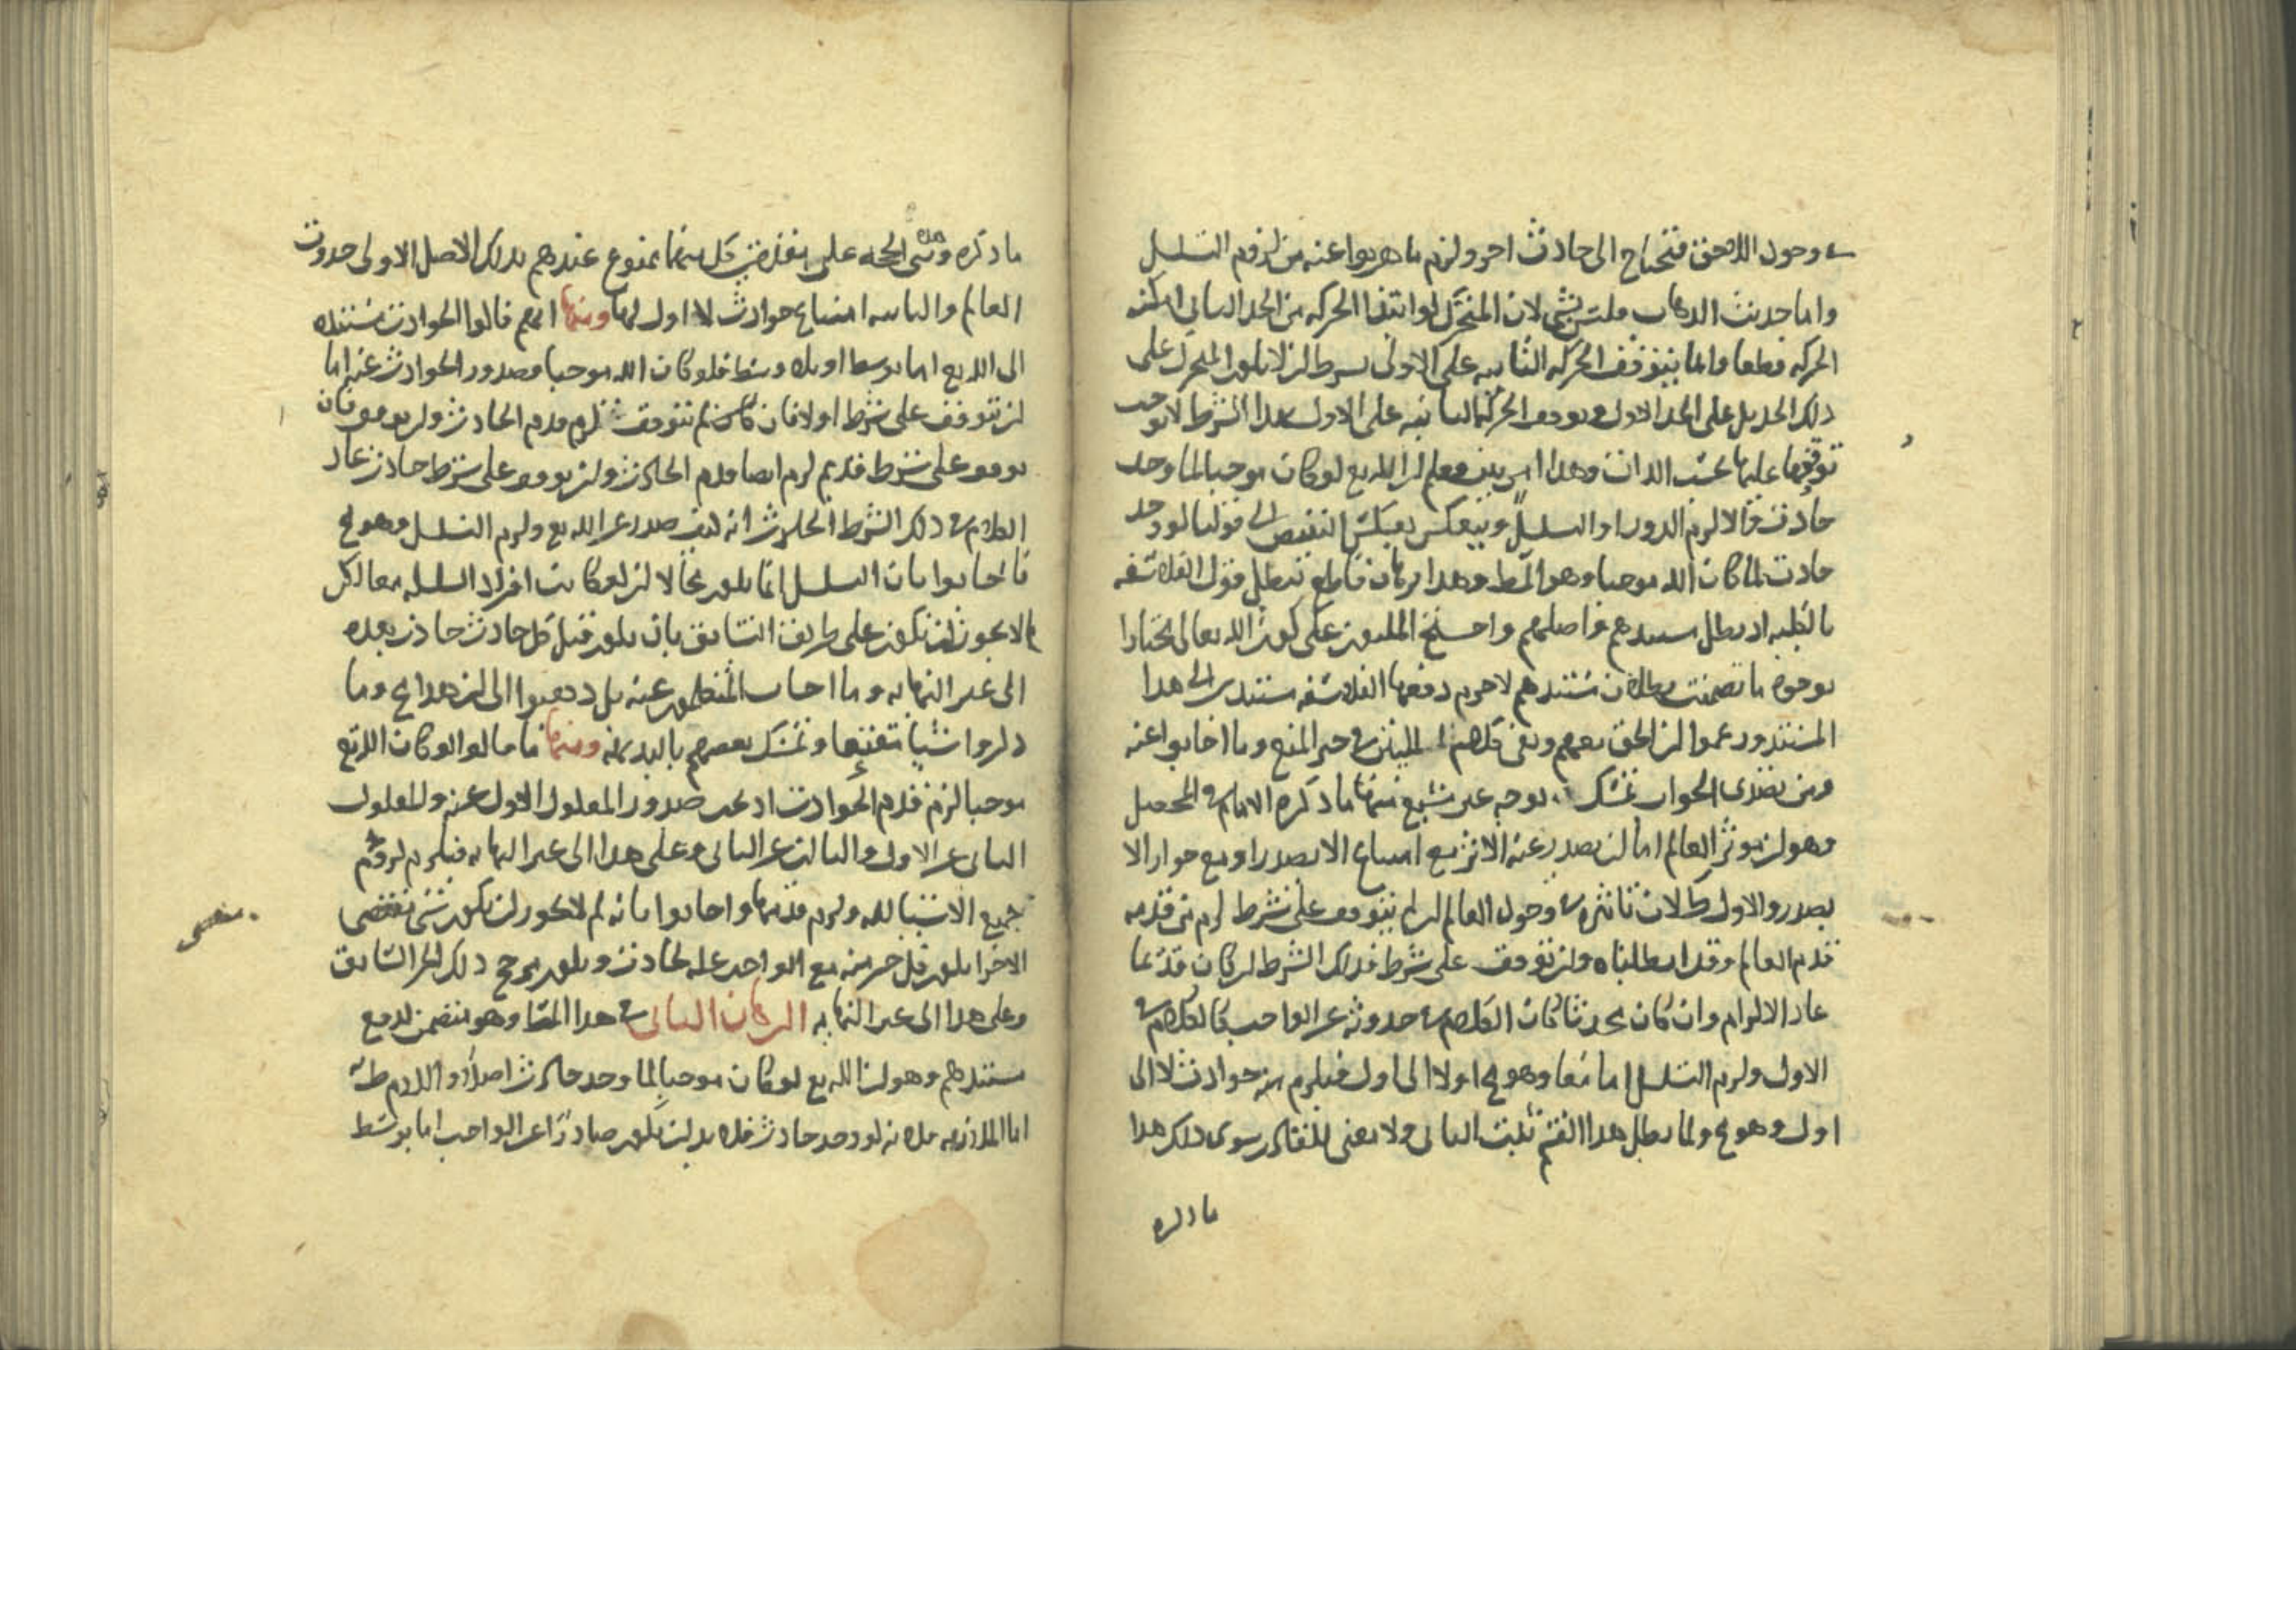 في وجود اللاحق فتحتاج الى حادث اخر ولزم ما هربوا عنه من لزوم التسلسل
واما حديث الذهاب فليس بشى لان المتحرك لو ابتدا الحركه من الحد الثانى امكنه
الحركه قطعا وانما يتوقف الحركه الثانيه على الاولى بشرط ان لا يكون المتحرك على
ذلك الحد بل على الحد الاول وتوقف الحركه الثانيه على الاولى بهذا الشرط لا يوجب
توقفها عليها بحسب الذات وهذا بين فعلم ان الله تع لو كان موجبا لما وجد
حادث والا لزم الدور او التسلسل وينعكس بعكس النقيض الى قولنا لو وجد
حادث لما كان الله موجبا وهو المط وهذا برهان قاطع تبطل قول الفلاسفه
بالكليه اذ بطل سندهم واصلهم واحتج المليون على كون الله تعالى مختارا
بوجوه ما تضمنت بطلان مستندهم لا جرم دفعها الفلاسفه مستندين الى هذا
المستند وزعموا ان الحق معهم وبقى كلام المليين في حيز المنع وما اجابوا عنه
ومن تصدى الجواب تمسك بوجه غير مشبع منها ما ذكره الامام في المحصل
وهو ان موثر العالم اما ان يصدر عنه الاثر مع امتناع الا يصدر او مع جواز الا
يصدر والاول بط لان تاثيره في وجود العالم ان لم يتوقف على شرط لزم من قدمه
قدم العالم وقد ابطلناه وان توقف على شرط فذلك الشرط ان كان قديما
عاد الالزام وان كان محدثا كان الكلام في حدوثه عن الواجب كالكلام في
الاول ولزم التسلسل اما معا وهو مح اولا الى اول فيلزم منه حوادث لا الى
اول وهو مح ولما بطل هذا القسم ثبت الثانى ولا معنى للقادر سوى ذلك هذا
ما ذكره
ما ذكره ومبنى هذه الحجه على مقدمتين كل منهما ممنوع عندهم بذلك الاصل الاولى حدوث
العالم والثانيه امتناع حوادث لا اول لها ومنها انهم قالوا الحوادث مستنده
الى الله تع اما بوسط او بلا وسط فلو كان الله موجبا فصدور الحوادث عنه اما
ان تتوقف على شرط اولا فان كان لم تتوقف لزم قدم الحادث وان توقف فان
توقف على شرط قديم لزم ايضا قدم الحادث وان توقف على شرط حادث عاد
الكلام في ذلك الشرط الحادث انه كيف صدر عن الله تع ولزم التسلسل وهو مح
فاجابوا بان التسلسل انما يكون محالا ان لو كانت افراد السلسله معا لكن
لم لا يجوز ان تكون على طريق التسابق بان يكون قبل كل حادث حادث بعده
الى غير النهايه وما اجاب المتكلمون عنه بل ذهبوا الى ان هذا مح وما
ذكروا شيا مقنعا وتمسك بعضهم بالبديهه ومنها ما قالوا لو كان الله تع
موجبا لزم قدم الحوادث اذ يجب صدور المعلول الاول عنه والمعلول
الثانى عن الاول والثالث عن الثانى وعلى هذا الى غير النهايه فيلزم لزوم
جميع الاشيا لله ولزم قدمها واجابوا بانه لم لا يجوز ان يكون شى مقتضى
الاجزا يكون كل جز منه مع الواحد عله لحادث ويكون مرجح ذلك الجز السابق
وعلى هذا الى غير النهايه البرهان الثانى في هذا المط وهو متضمن لدفع
مستندهم وهو ان الله تع لو كان موجبا لما وجد حادث اصلا واللازم ط
اما الملازمه فلانه لو وجد حادث فلا بد ان يكون صادرا عن الواجب اما بوسط